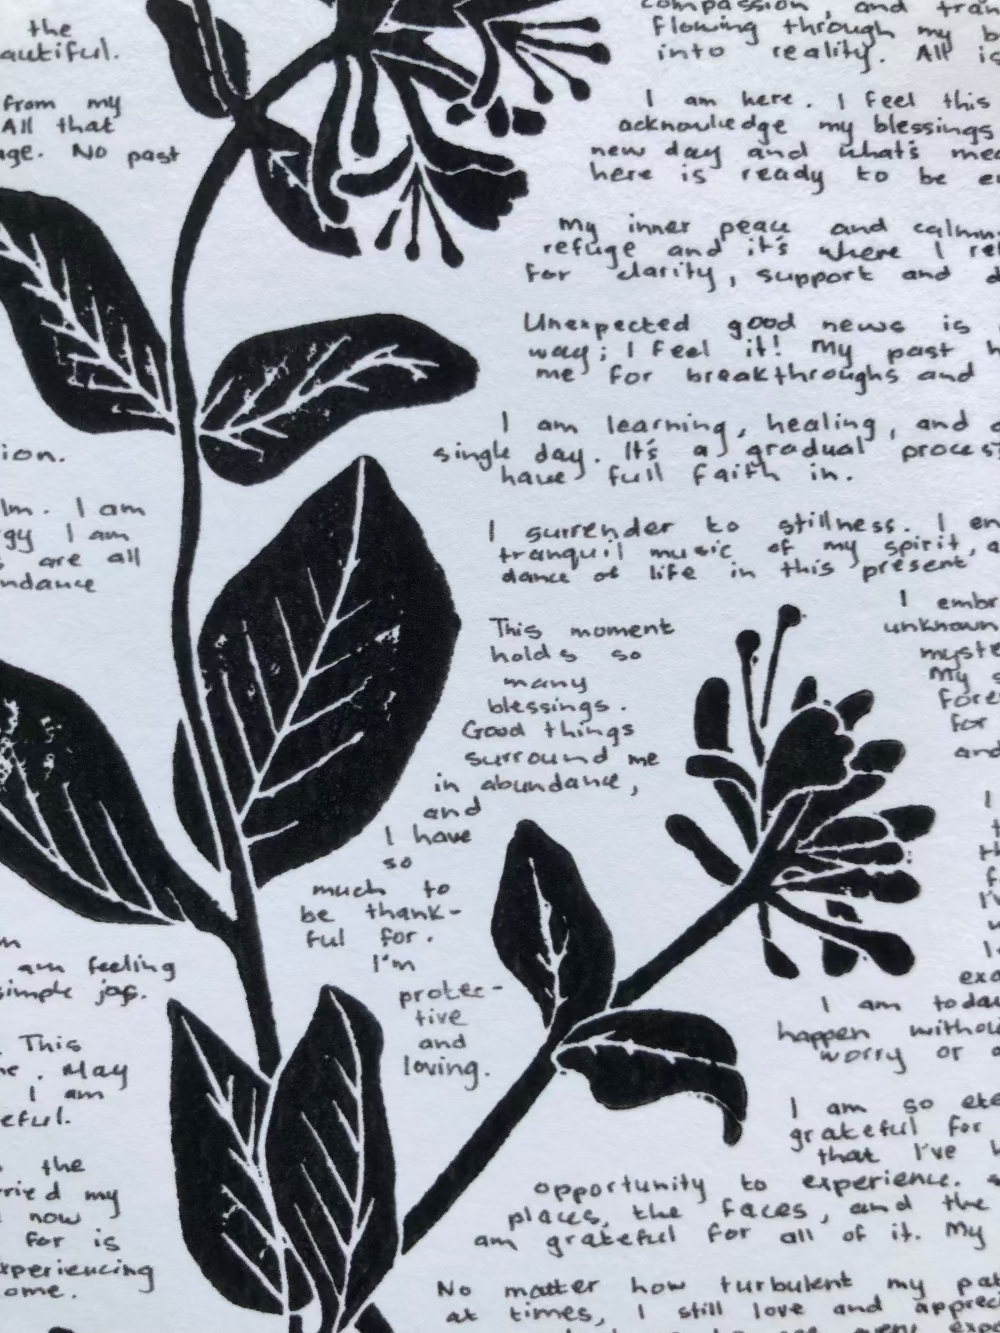 the
autiful.
from my
All that
age. No past
ion.
lm. I am
gy I am
s are all
ndance
m
am feeling
simple joys.
. This
ne. May
I am
eful.
the
rried my
now
for is
xperiencing
ome.
compassion, and tran
flowing through my b
into reality. All is
I am here. I feel this
acknowledge my blessings
new day and what's mea
here is ready to be e
My inner peace and calmn
refuge and it's where I re
for clarity, support and d
Unexpected good news is
way; I feel it! My past h
me for breakthroughs and
I am learning, healing, and g
single day. It's a gradual process
have full faith in.
I surrender to stillness. I en
tranquil music of my spirit, a
dance of life in this present
I embr
unknown
myste
My s
fore
for
and
This moment
holds so
many
blessings.
Good things
surround me
in abundance,
and
I have
so
much to
be thank-
ful for.
I'm
protec-
tive
and
loving.
I
t
th
f
I've
w
le
exa
I am today
happen withou
worry or a
I am so ete
grateful for
that I've h
opportunity to experience.
places, the faces, and the
am grateful for all of it. My
No matter how turbulent my pat
at times, I still love and appreci